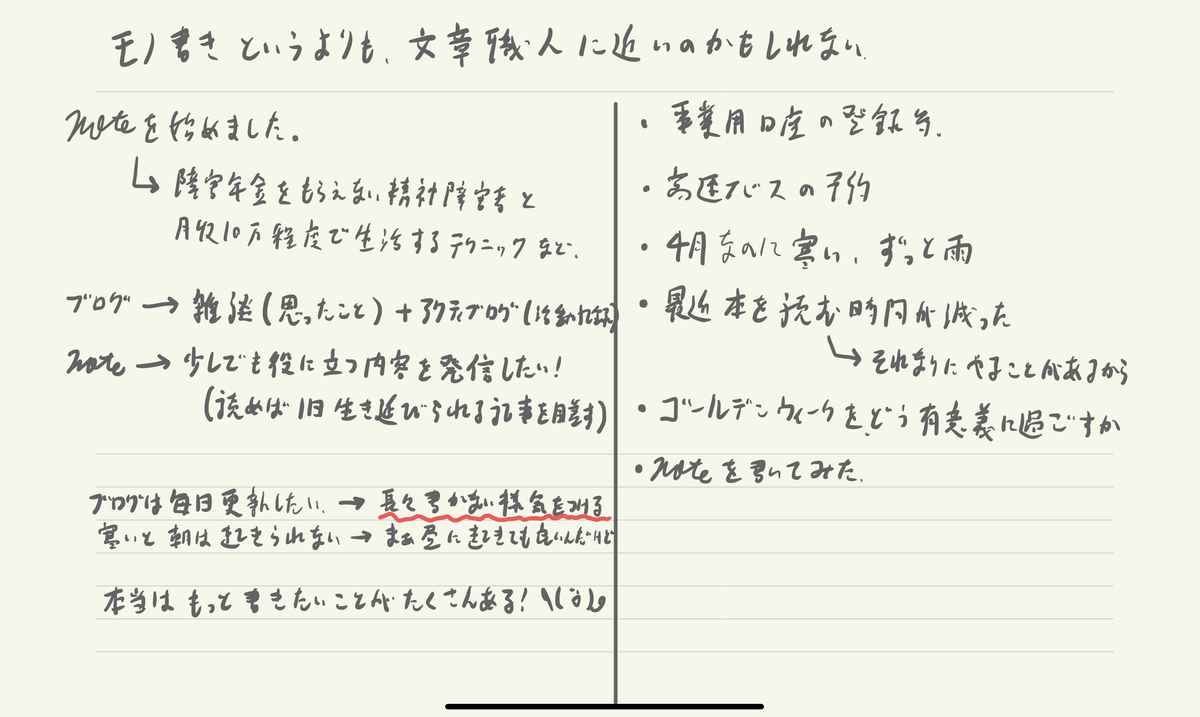 モノ書きというよりも、文章職人に近いのかもしれない
noteを始めました。
↳ 障害年金をもらえない精神障害者と
月収10万程度で生活するテクニックなど、
ブログ → 雑談(思ったこと)+アクティブログ(活動記録)
note → 少しでも役に立つ内容を発信したい!
(読めば1日生き延びられる記事を目指す)
ブログは毎日更新したい、→ 長々書かない様気をつける
寒いと朝は起きられない → まぁ昼に起きても良いんだけど
本当はもっと書きたいことがたくさんある!
・事業用口座の登録等、
・高速バスの予約
・4月なのに寒い、ずっと雨
・最近本を読む時間が減った
↳ それなりにやることがあるから
・ゴールデンウィークをどう有意義に過ごすか
・noteを書いてみた、